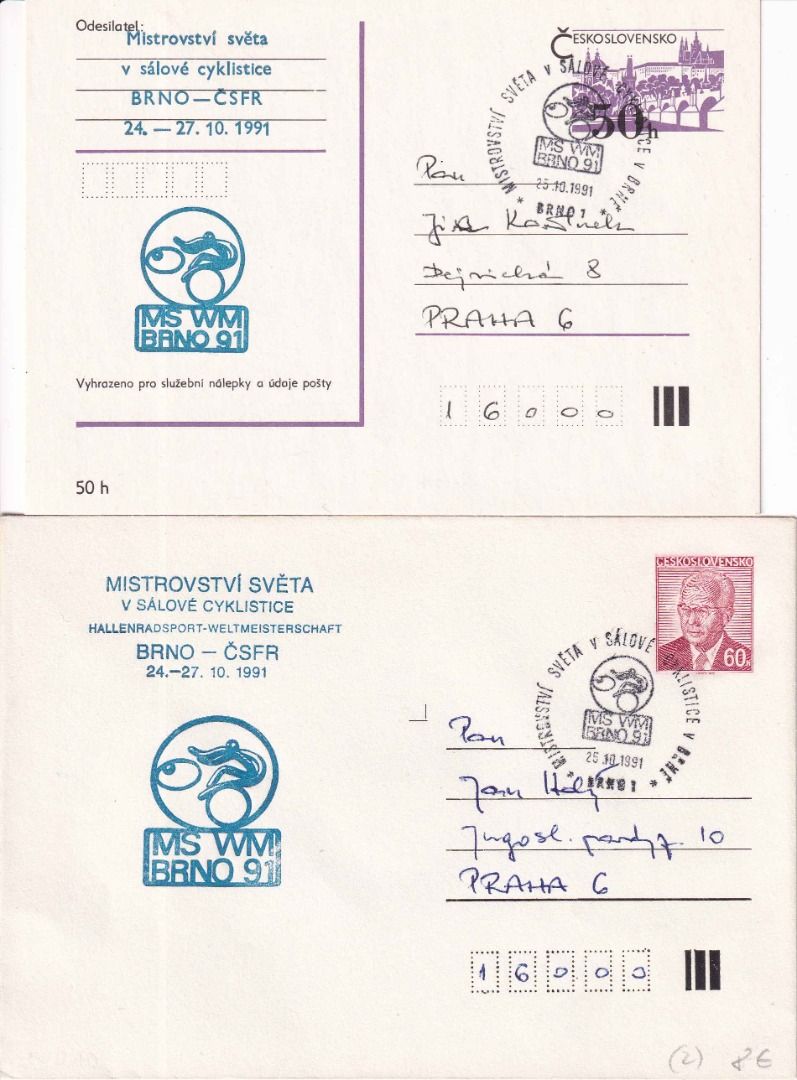 Odesílatel:
Mistrovství světa
v sálové cyklistice
BRNO — ČSFR
24. — 27. 10. 1991
MS WM
BRNO 91
Vyhrazeno pro služební nálepky a údaje pošty
50 h
ČESKOSLOVENSKO
50h
* MISTROVSTVÍ SVĚTA V SÁLOVÉ CYKLISTICE V BRNĚ *
MS WM
BRNO 91
25.10.1991
BRNO 1
Pan
8
PRAHA 6
16000
MISTROVSTVÍ SVĚTA
V SÁLOVÉ CYKLISTICE
HALLENRADSPORT-WELTMEISTERSCHAFT
BRNO — ČSFR
24.—27. 10. 1991
MS WM
BRNO 91
ČESKOSLOVENSKO
60h
* MISTROVSTVÍ SVĚTA V SÁLOVÉ CYKLISTICE V BRNĚ *
MS WM
BRNO 91
25.10.1991
BRNO 1
Pan
Jan
Jugosl. 10
PRAHA 6
16000
(2) 8€